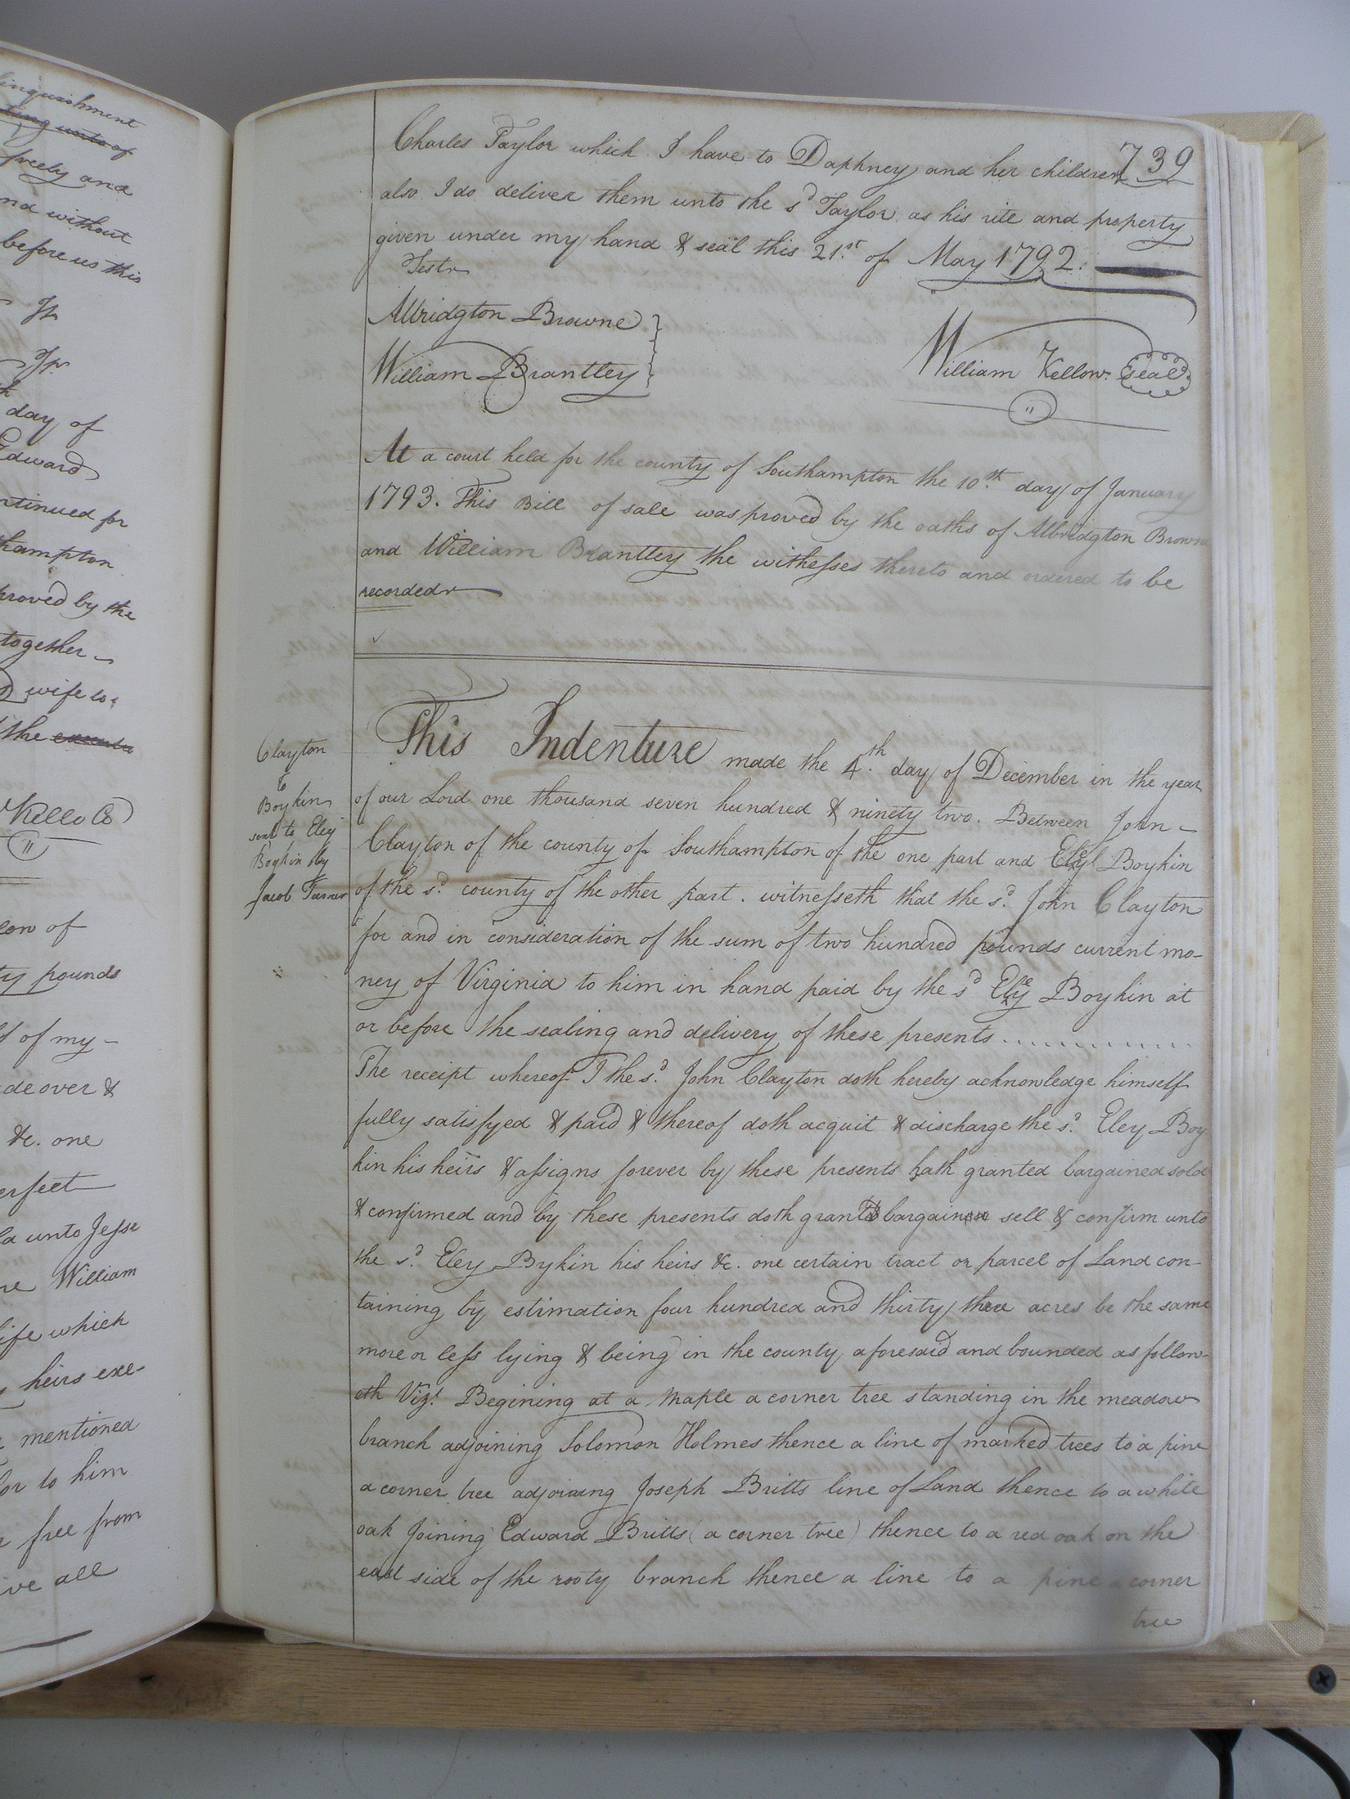 linquishment
freely and
nd without
before us this
day of
Edward
ntinued for
hampton
proved by the
together
wife to
the
Kello
eon of
ty pounds
of my
de over &
&c. one
erfect
a unto Jesse
re William
life which
heirs exe-
mentioned
or to him
free from
ive all
739
Charles Taylor which I have to Daphney and her children
also I do deliver them unto the sd Taylor as his rite and property
given under my hand & seal this 21st of May 1792.
Testr
Allridgton Browne
William Brantley
William Kellow. Seal
At a court held for the county of Southampton the 10th day of January
1793. This Bill of sale was proved by the oaths of Albridgton Browne
and William Brantley the witnesses thereto and ordered to be
recordedr
Clayton
to
Boykin
sent to Eley
Boykin by
Jacob Turner
This Indenture made the 4th day of December in the year
of our Lord one thousand seven hundred & ninety two. Between John
Clayton of the county of Southampton of the one part and Eley Boykin
of the sd county of the other part. witnesseth that the sd John Clayton
for and in consideration of the sum of two hundred pounds current mo-
ney of Virginia to him in hand paid by the sd Eley Boykin at
or before the sealing and delivery of these presents.............
The receipt whereof I the sd John Clayton doth hereby acknowledge himself
fully satisfyed & paid & thereof doth acquit & discharge the sd Eley Boy
kin his heirs & assigns forever by these presents hath granted bargained sold
& confirmed and by these presents doth grant bargain sell & confirm unto
the sd Eley Bykin his heirs &c. one certain tract or parcel of Land con-
taining by estimation four hundred and thirty three acres be the same
more or less lying & being in the county aforesaid and bounded as follow-
eth Vizt Begining at a maple a corner tree standing in the meadow
branch adjoining Solomon Holmes thence a line of marked trees to a pine
a corner tree adjoining Joseph Britts line of Land thence to a white
oak Joining Edward Britts (a corner tree) thence to a red oak on the
east side of the rooty branch thence a line to a pine a corner
tree